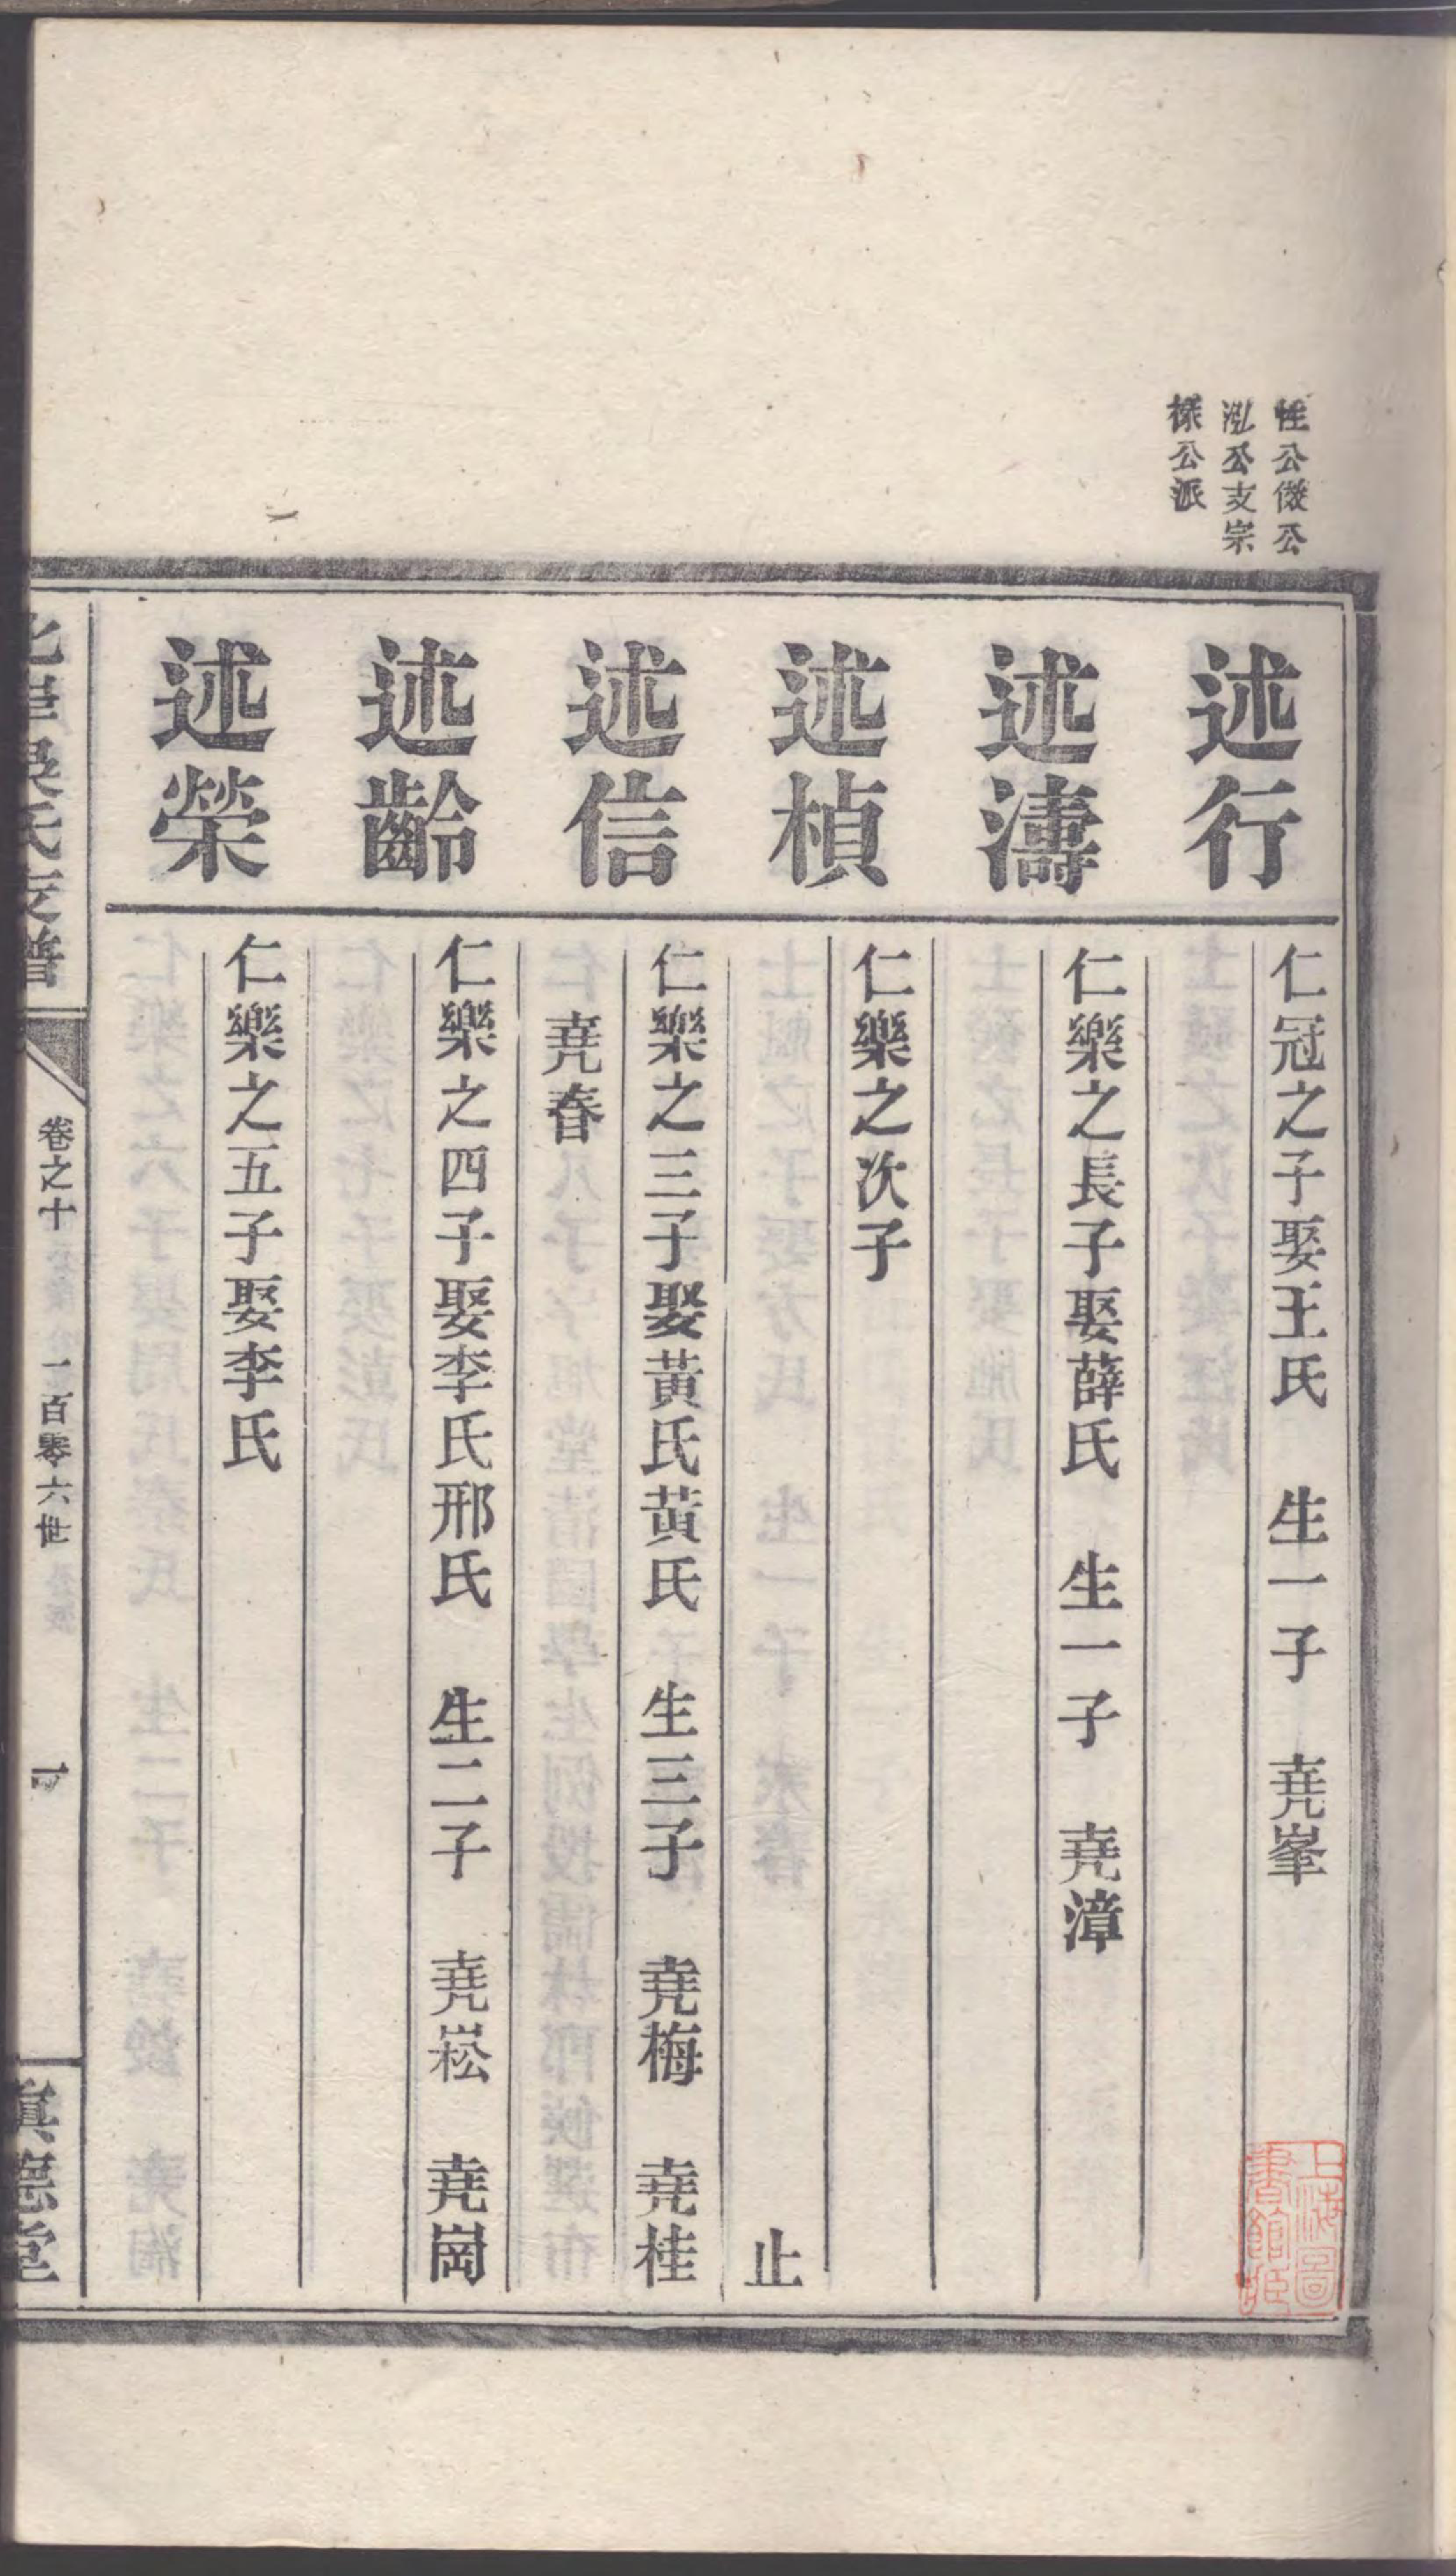 公儆公
泓公支宗
公派
述行
仁冠之子娶王氏 生一子 堯峯
述濤
仁樂之長子娶薛氏 生一子 堯漳
述楨
仁樂之次子
止
述信
仁樂之三子娶黃氏黃氏 生三子 堯梅 堯桂
堯春
述齡
仁樂之四子娶李氏邢氏 生二子 堯崧 堯崗
述榮
仁樂之五子娶李氏
吳氏支譜
卷之十
一百零六世
真德堂
上海圖書館藏